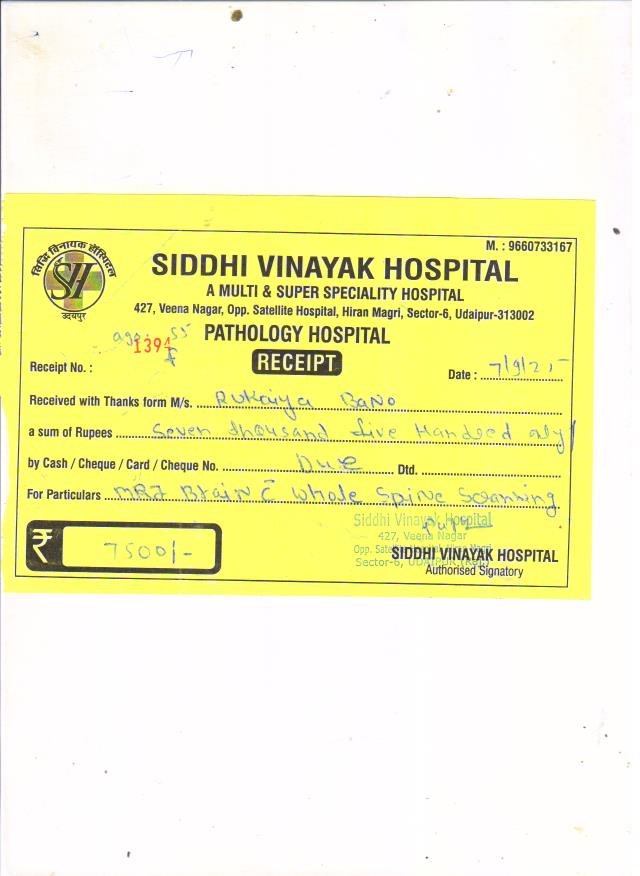 M. : 9660733167
सिद्धि विनायक हॉस्पिटल
SH
उदयपुर
SIDDHI VINAYAK HOSPITAL
A MULTI & SUPER SPECIALITY HOSPITAL
427, Veena Nagar, Opp. Satellite Hospital, Hiran Magri, Sector-6, Udaipur-313002
age. 55
PATHOLOGY HOSPITAL
1394
F
RECEIPT
Receipt No. :
Date : 7/9/21-
Received with Thanks form M/s. Rukaiya Bano
a sum of Rupees Seven thousand five Handred only/
by Cash / Cheque / Card / Cheque No. Due Dtd.
For Particulars MRI Brain c̄ whole Spine Scanning
Siddhi Vinayak Hospital
427, Veena Nagar
Opp. Satellite
Sector-6, UDAIPUR (Raj.)
₹ 7500/-
SIDDHI VINAYAK HOSPITAL
Authorised Signatory